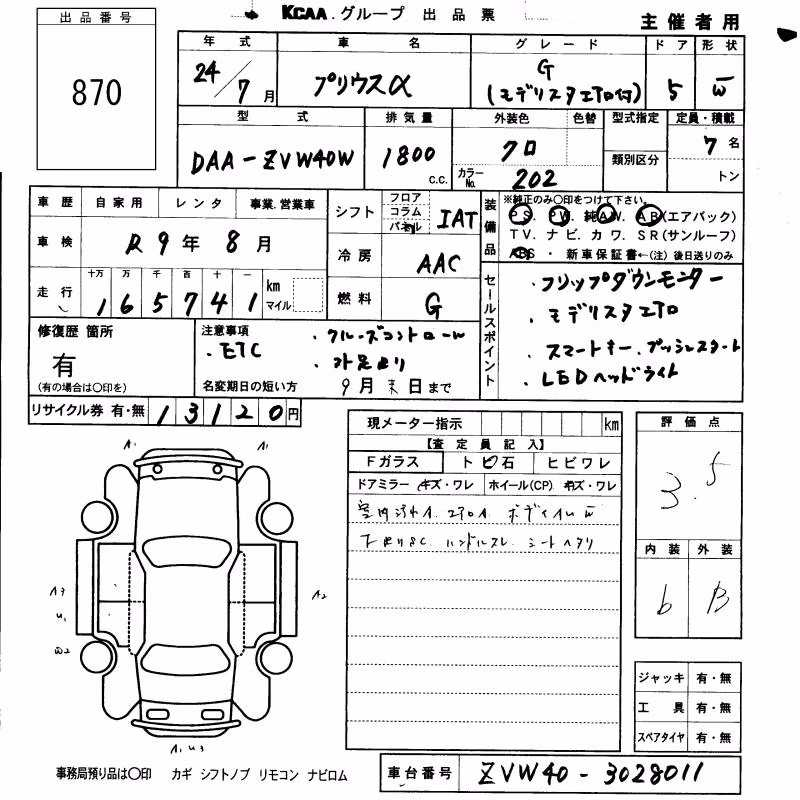 KCAA.グループ 出品票
主催者用
出品番号
870
年 式 車 名 グレード ドア 形状
24/7月 プリウスα G (モデリスタエアロ付) 5 W
型 式 排気量 外装色 色替 型式指定 定員・積載
DAA-ZVW40W 1800 c.c. クロ カラーNo. 202 類別区分 7名
トン
車歴 自家用 レンタ 事業.営業車
車検 R9年8月
走行 十万 万 千 百 十 一 km マイル
165741
シフト フロア コラム パネル IAT
冷房 AAC
燃料 G
装備品 ※純正のみ〇印をつけて下さい。
PS. PW. 純AW. AB(エアバック)
TV. ナビ. カワ. SR(サンルーフ)
ABS ・ 新車保証書←(注)後日送りのみ
セールスポイント
・フリップダウンモニター
・モデリスタエアロ
・スマートキー.プッシュスタート
・LEDヘッドライト
修復歴 箇所
有
(有の場合は〇印を)
注意事項
・ETC
・クルーズコントロール
・下見より
名変期日の短い方 9月末日まで
リサイクル券 有・無 13120円
現メーター指示 km
【査定員記入】
Fガラス トビ石 ヒビワレ
ドアミラー キズ・ワレ ホイール(CP) キズ・ワレ
室内汚れA. エアロA. ボディイルW
下廻りSC. ハンドルスレ. シートヘタリ
評価点
3.5
内装 外装
b B
A1 A1
A3
U1
W2
A2
A1.U3
ジャッキ 有・無
工具 有・無
スペアタイヤ 有・無
事務局預り品は〇印 カギ シフトノブ リモコン ナビロム
車台番号 ZVW40-3028011